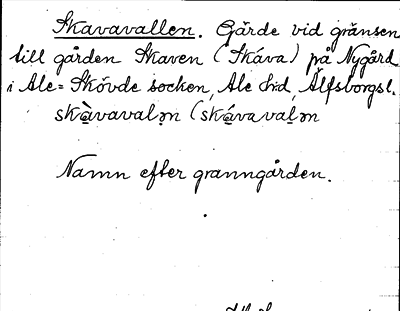 Skavavallen. Gärde vid gränsen
till gården Skaven (Skáva) på Nygård
i Ale-Skövde socken, Ale hd, Älfsborgs l.
skàvavalən (skávavalən
Namn efter granngården.